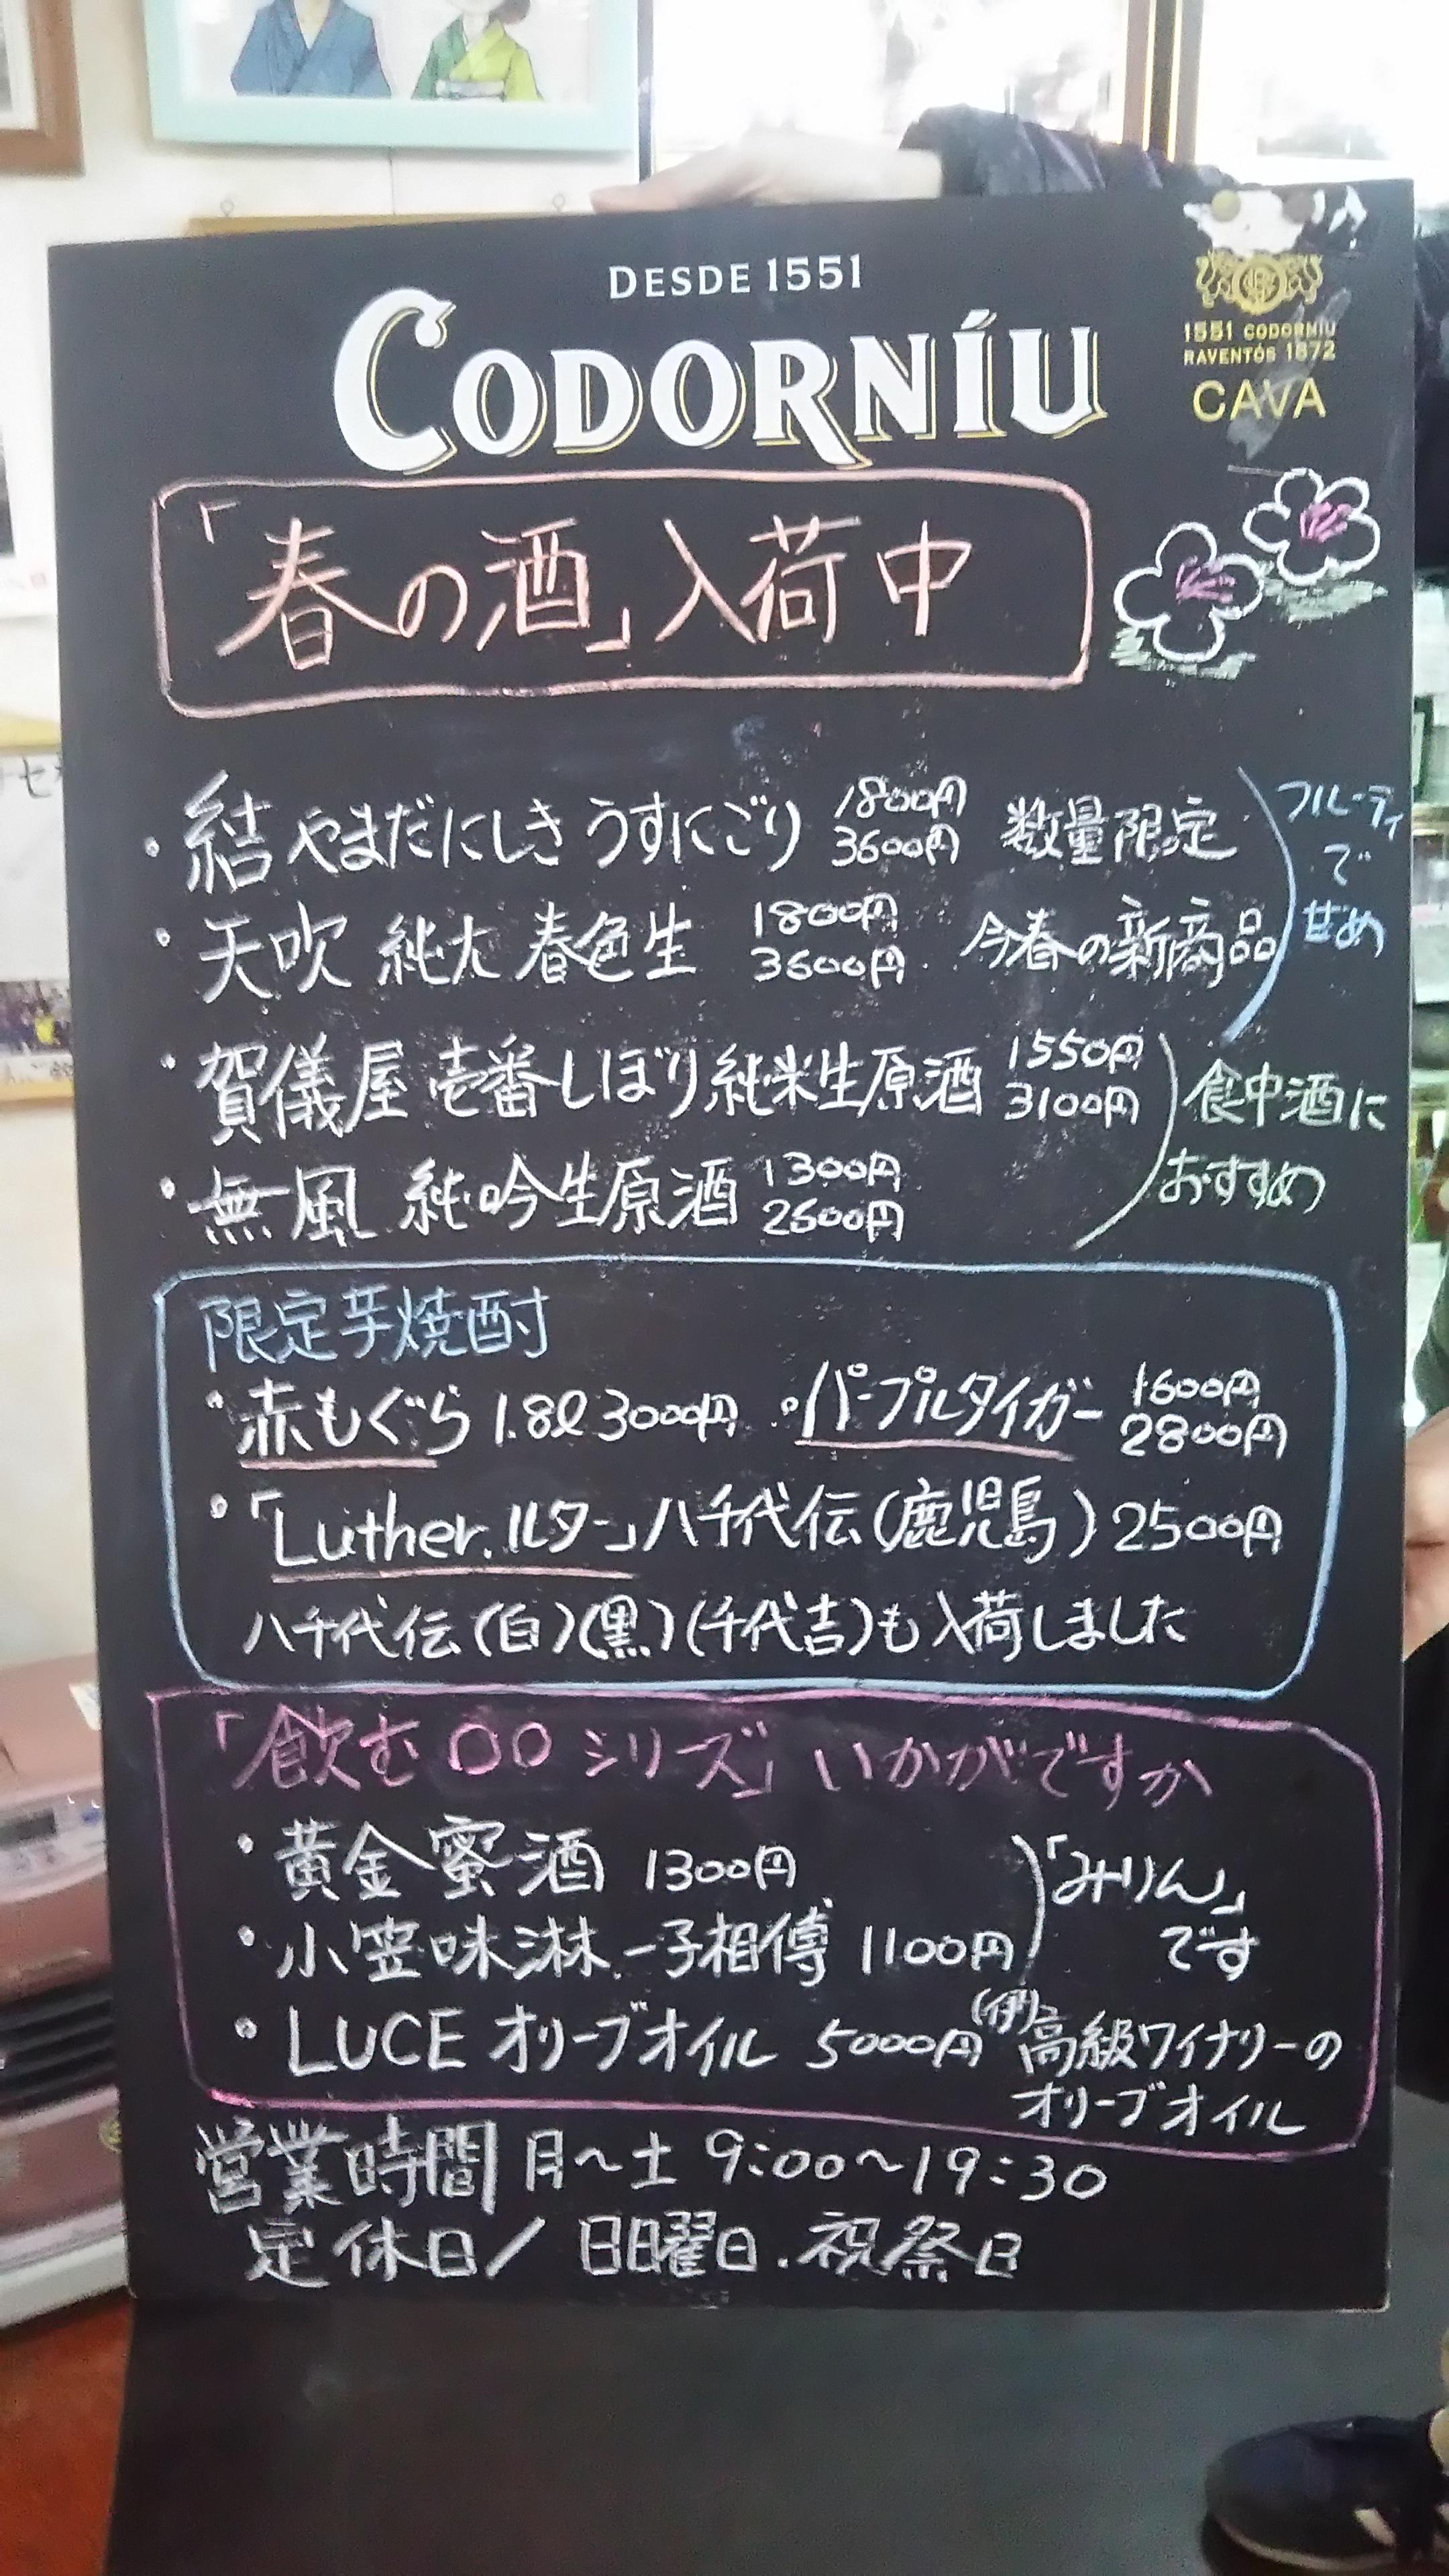 DESDE 1551
CODORNÍU
1551 CODORNÍU
RAVENTÓS 1872
CAVA
「春の酒」入荷中
・結 やまだにしき うすにごり 1800円 3600円 数量限定
・天吹 純大 春色生 1800円 3600円 今春の新商品
フルーティ
で
甘め
・賀儀屋 壱番しぼり純米生原酒 1550円 3100円
・無風 純吟生原酒 1300円 2600円
食中酒に
おすすめ
限定芋焼酎
・赤もぐら 1.8ℓ 3000円 ・パープルタイガー 1600円 2800円
・「Luther.ルター」八千代伝(鹿児島) 2500円
八千代伝(白)(黒)(千代吉)も入荷しました
「飲む〇〇シリーズ」いかがですか
・黄金蜜酒 1300円
・小笠味淋 一子相傳 1100円
「みりん」
です
・LUCE オリーブオイル 5000円 (伊)高級ワイナリーの
オリーブオイル
営業時間 月〜土 9:00〜19:30
定休日/ 日曜日.祝祭日